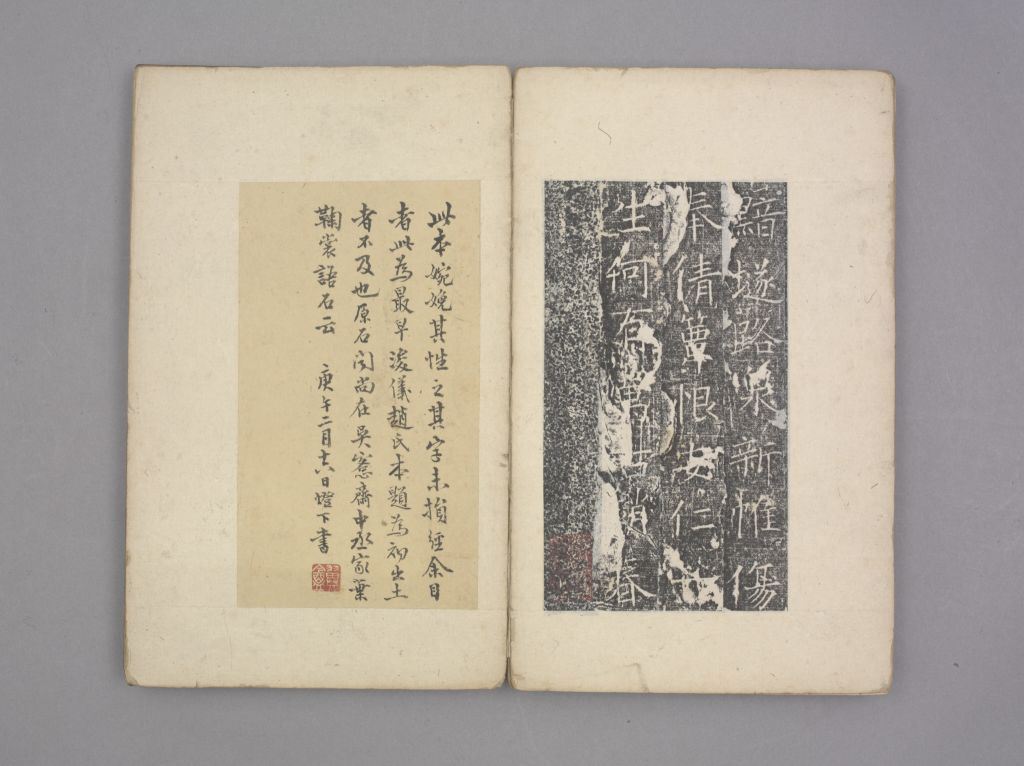 黯路哭新帷傷
奉倩恨安仁
生何春
此本婉娩其性之其字未損經余目
者此為最早浚儀趙氏本題為初出土
者不及也原石聞尚在吳愙齋中丞家葉
鞠裳語石云 庚午二月十六日燈下書